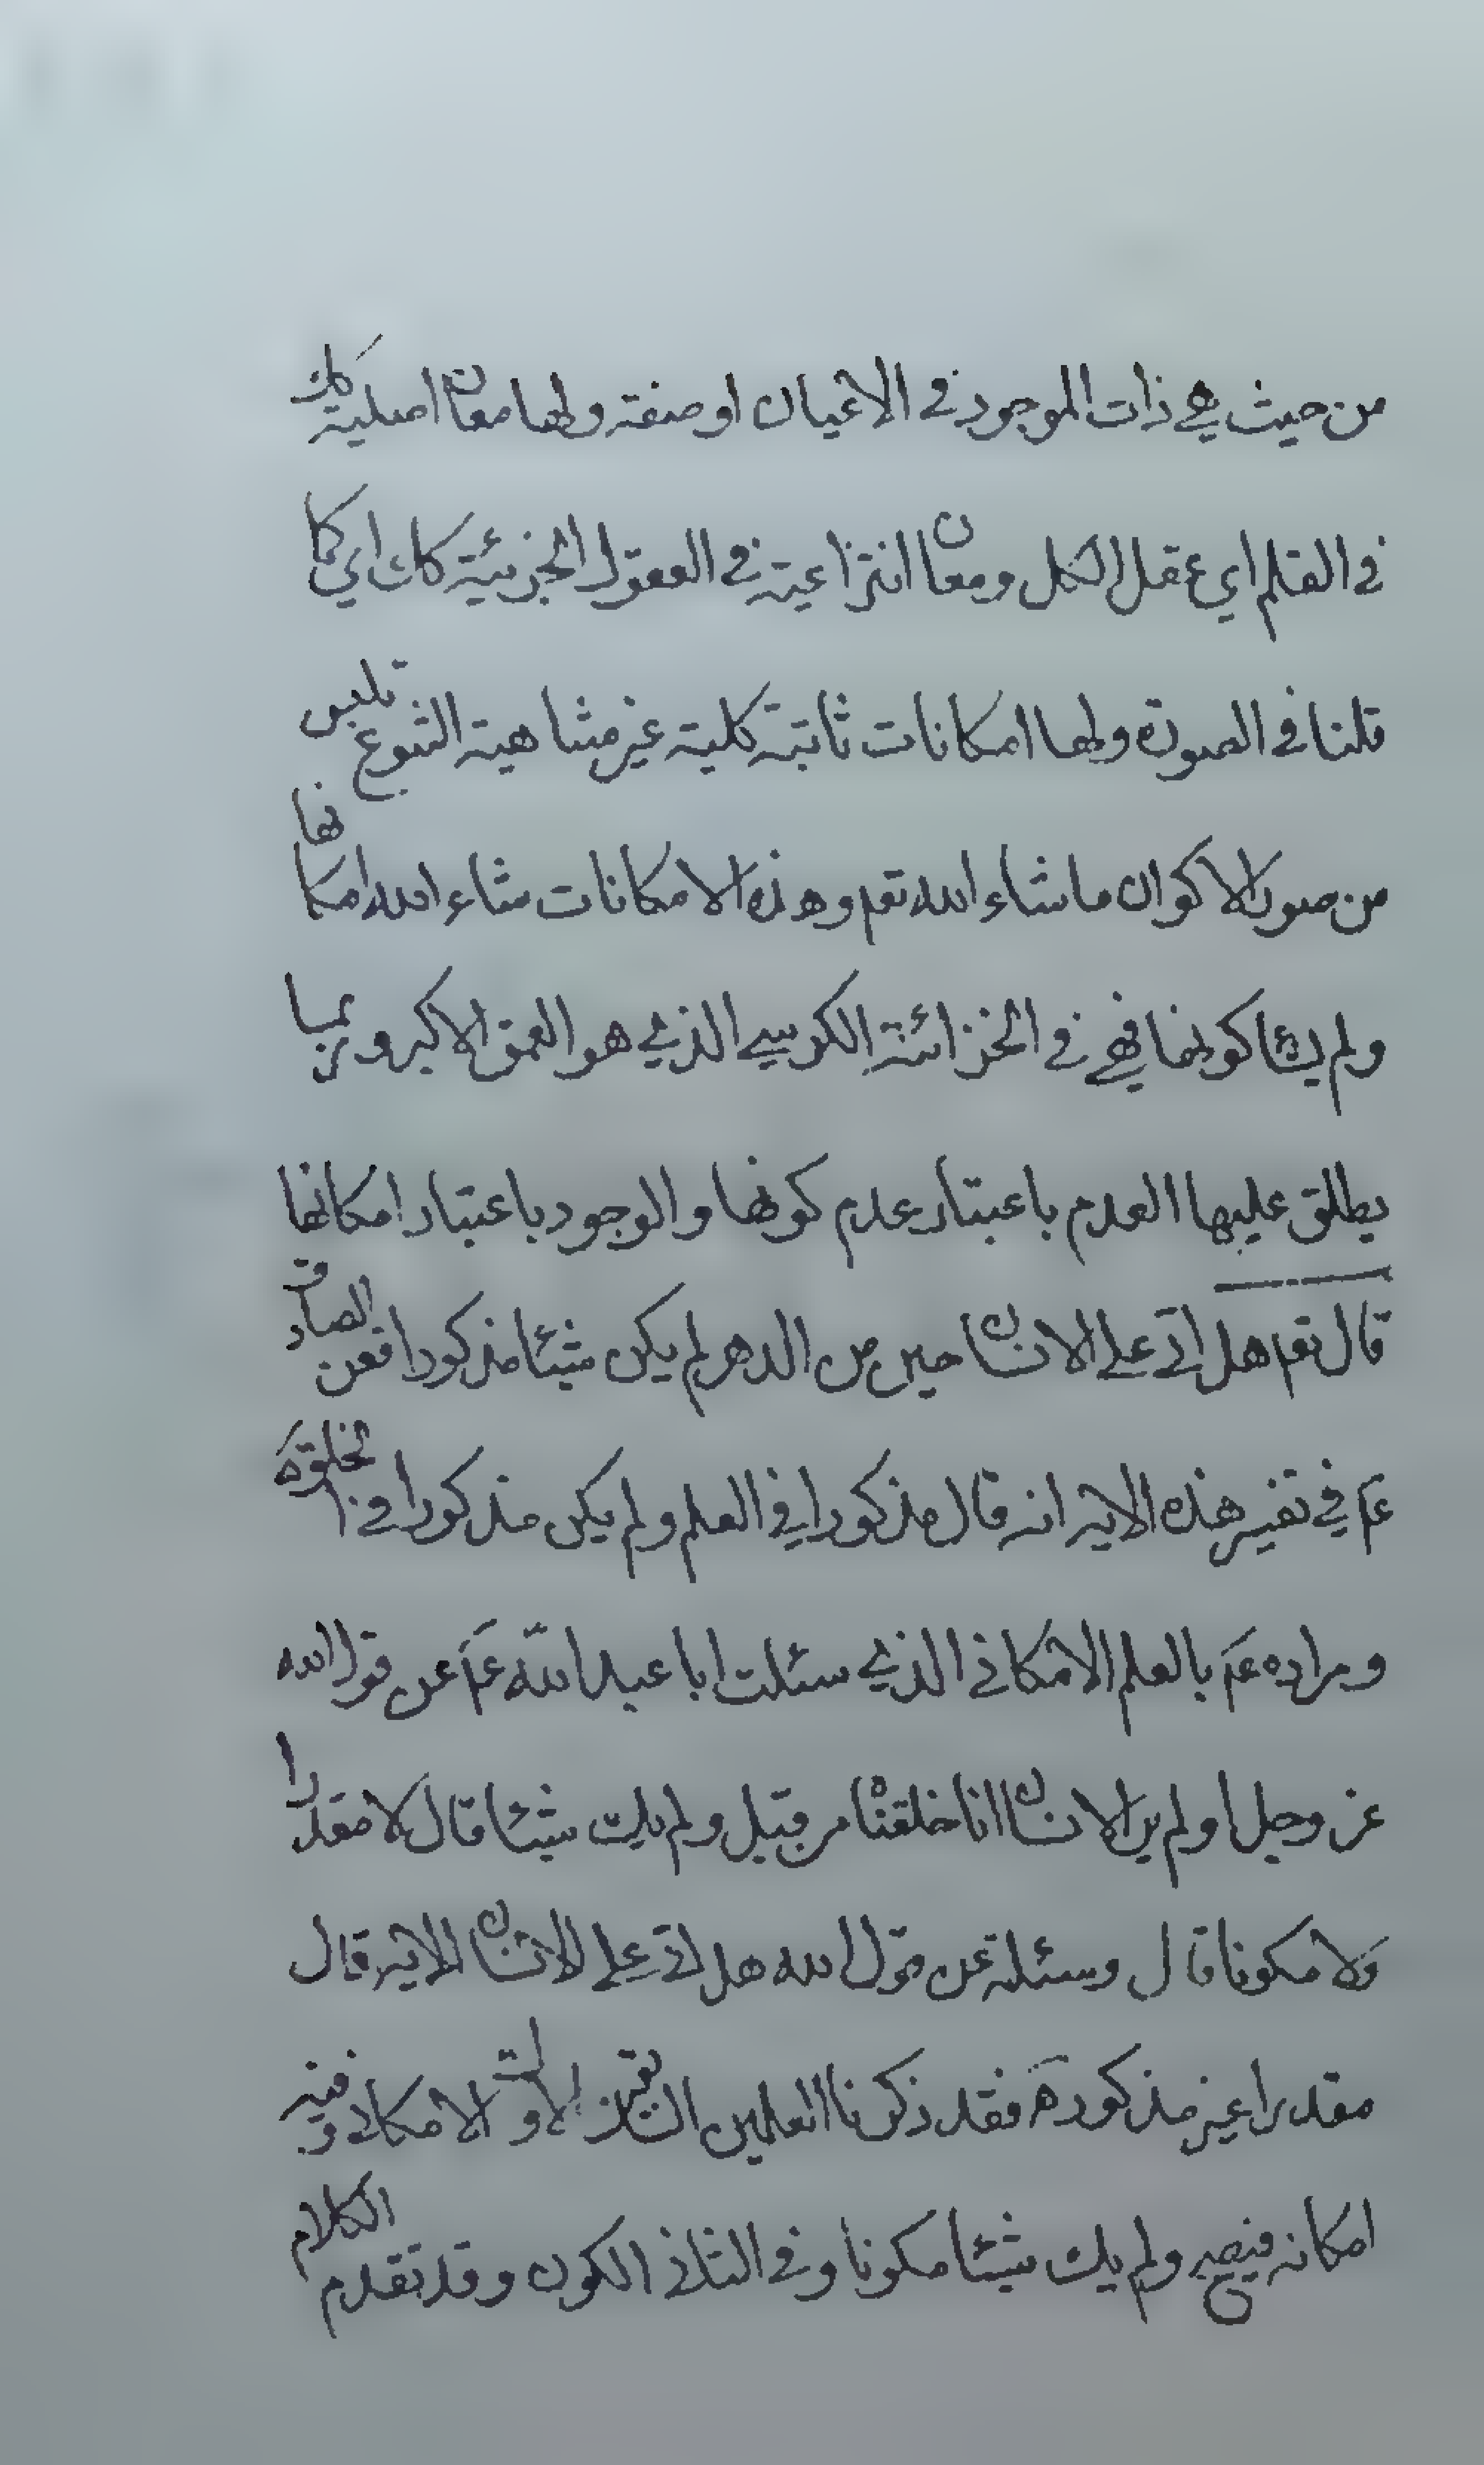 من حيث هي ذات الموجود في الاعيان او صفته ولها معان اصلية كك
في القلم اي عقل الكل ومعان انتزاعية في العقول الجزئية كك اي كما
قلنا في الصورة ولها امكانات ثابتة كلية غير متناهية التنوع تلبس
من صور الاكوان ما شاء الله تعم وهذه الامكانات شاء الله امكانها
ولم يشا كونها فهي في الخزائنة الكرسي الذي هو العمق الاكبر وربما
يطلق عليها العدم باعتبار عدم كونها والوجود باعتبار امكانها
قال تعم هل اتى على الانسان حين من الدهر لم يكن شيئا مذكورا فعن الصادق
عم في تفسير هذه الايه انه قال مذكورا في العلم ولم يكن مذكورا في الخلق وهَ
ومراده عم بالعلم الامكاني الذي سئلت ابا عبد الله عم عن قول الله
عز وجل اولم ير الانسان انا خلقناه من قبل ولم يك شيئا قال لا مقدرا
ولا مكونا قال وسئلته عن قول الله هل اتى على الانسان الايه قال
مقدرا غير مذكور هَ فقد ذكرنا العلمين الاول الامكان وفيه
امكانه فيصح ولم يك شيئا مكونا وفي الثاني الكون وقد تقدم الكلام